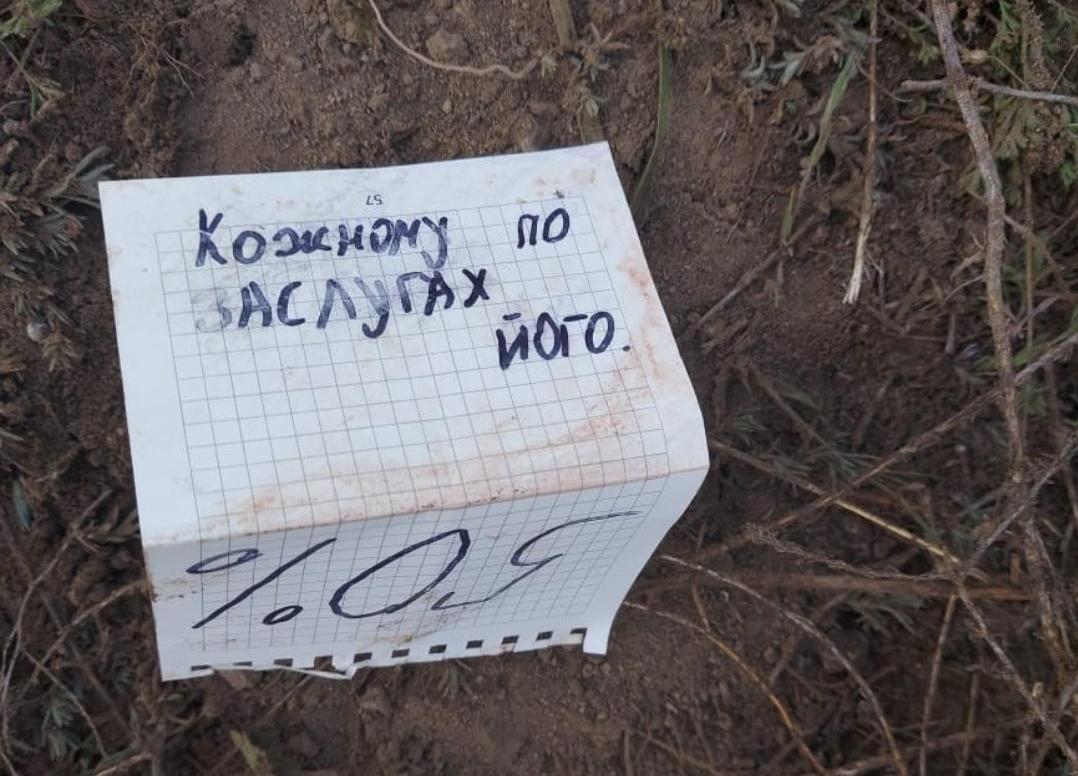 57
Кожному по
ЗАСЛУГАХ
ЙОГО.
50%